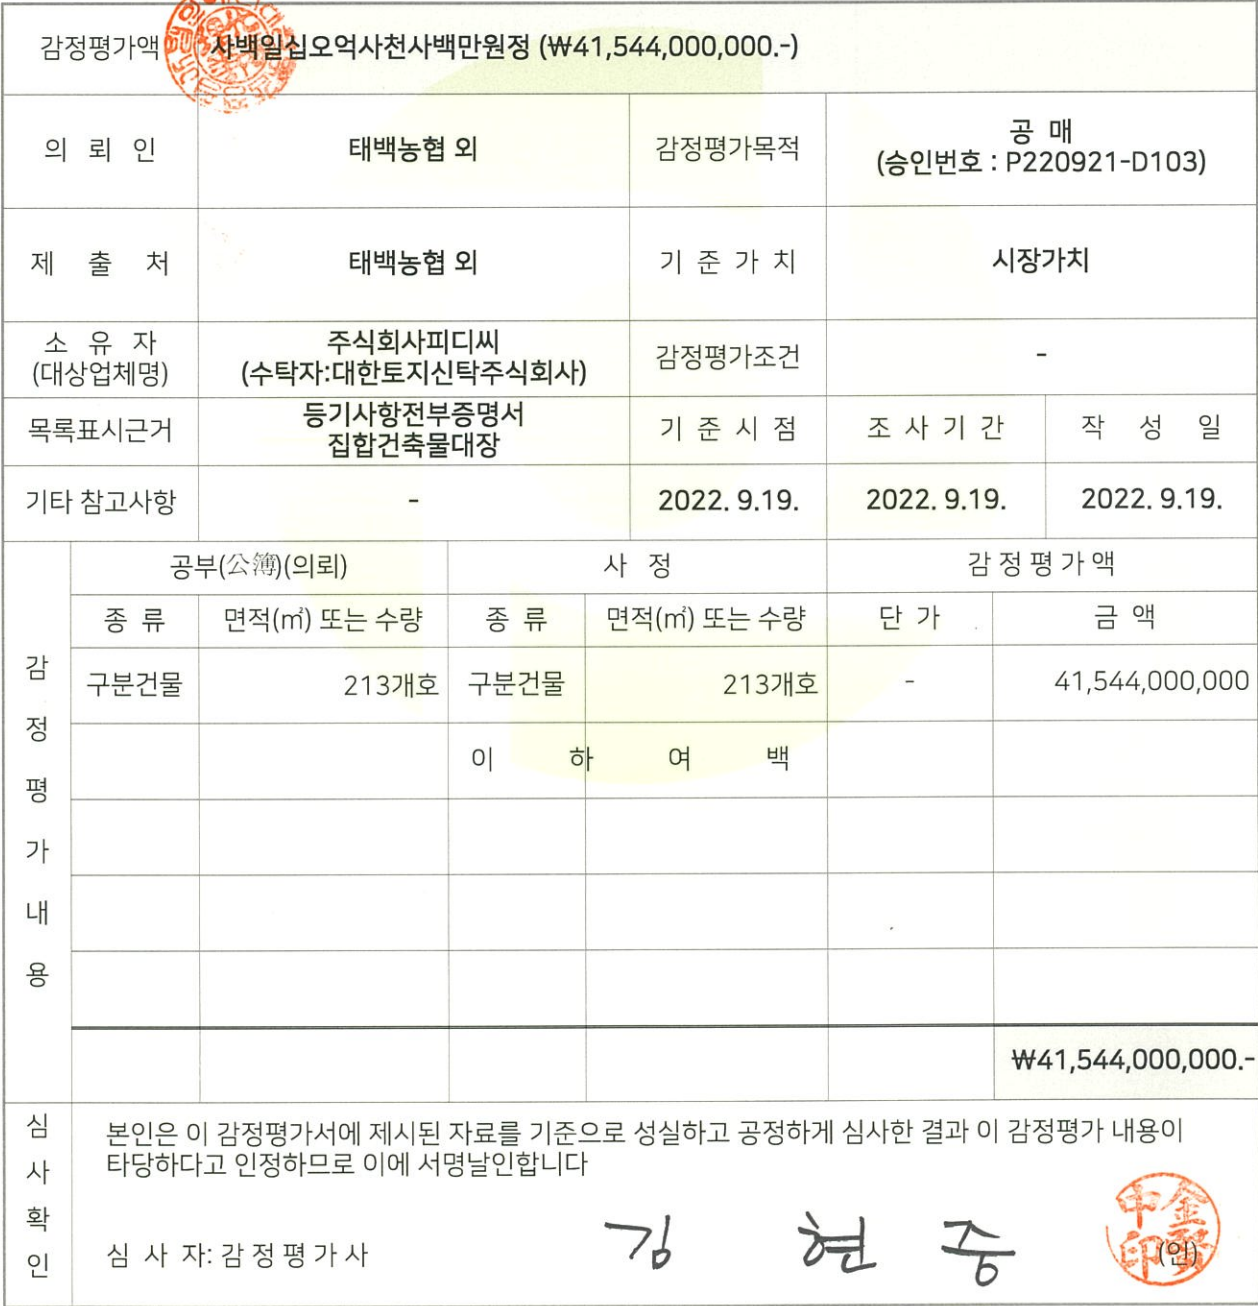 감정평가액 사백일십오억사천사백만원정 (₩41,544,000,000.-)
의 뢰 인 태백농협 외 감정평가목적 공 매
(승인번호 : P220921-D103)
제 출 처 태백농협 외 기 준 가 치 시장가치
소 유 자
(대상업체명)
주식회사피디씨
(수탁자:대한토지신탁주식회사)
감정평가조건 -
목록표시근거
등기사항전부증명서
집합건축물대장
기 준 시 점 조 사 기 간 작 성 일
기타 참고사항 - 2022. 9.19. 2022. 9.19. 2022. 9.19.
감정평가내용
공부(公簿)(의뢰) 사 정 감 정 평 가 액
종 류 면적(㎡) 또는 수량 종 류 면적(㎡) 또는 수량 단 가 금 액
구분건물 213개호 구분건물 213개호 - 41,544,000,000
이 하 여 백
₩41,544,000,000.-
심사확인
본인은 이 감정평가서에 제시된 자료를 기준으로 성실하고 공정하게 심사한 결과 이 감정평가 내용이
타당하다고 인정하므로 이에 서명날인합니다
심 사 자: 감 정 평 가 사 김 현 중 (인)